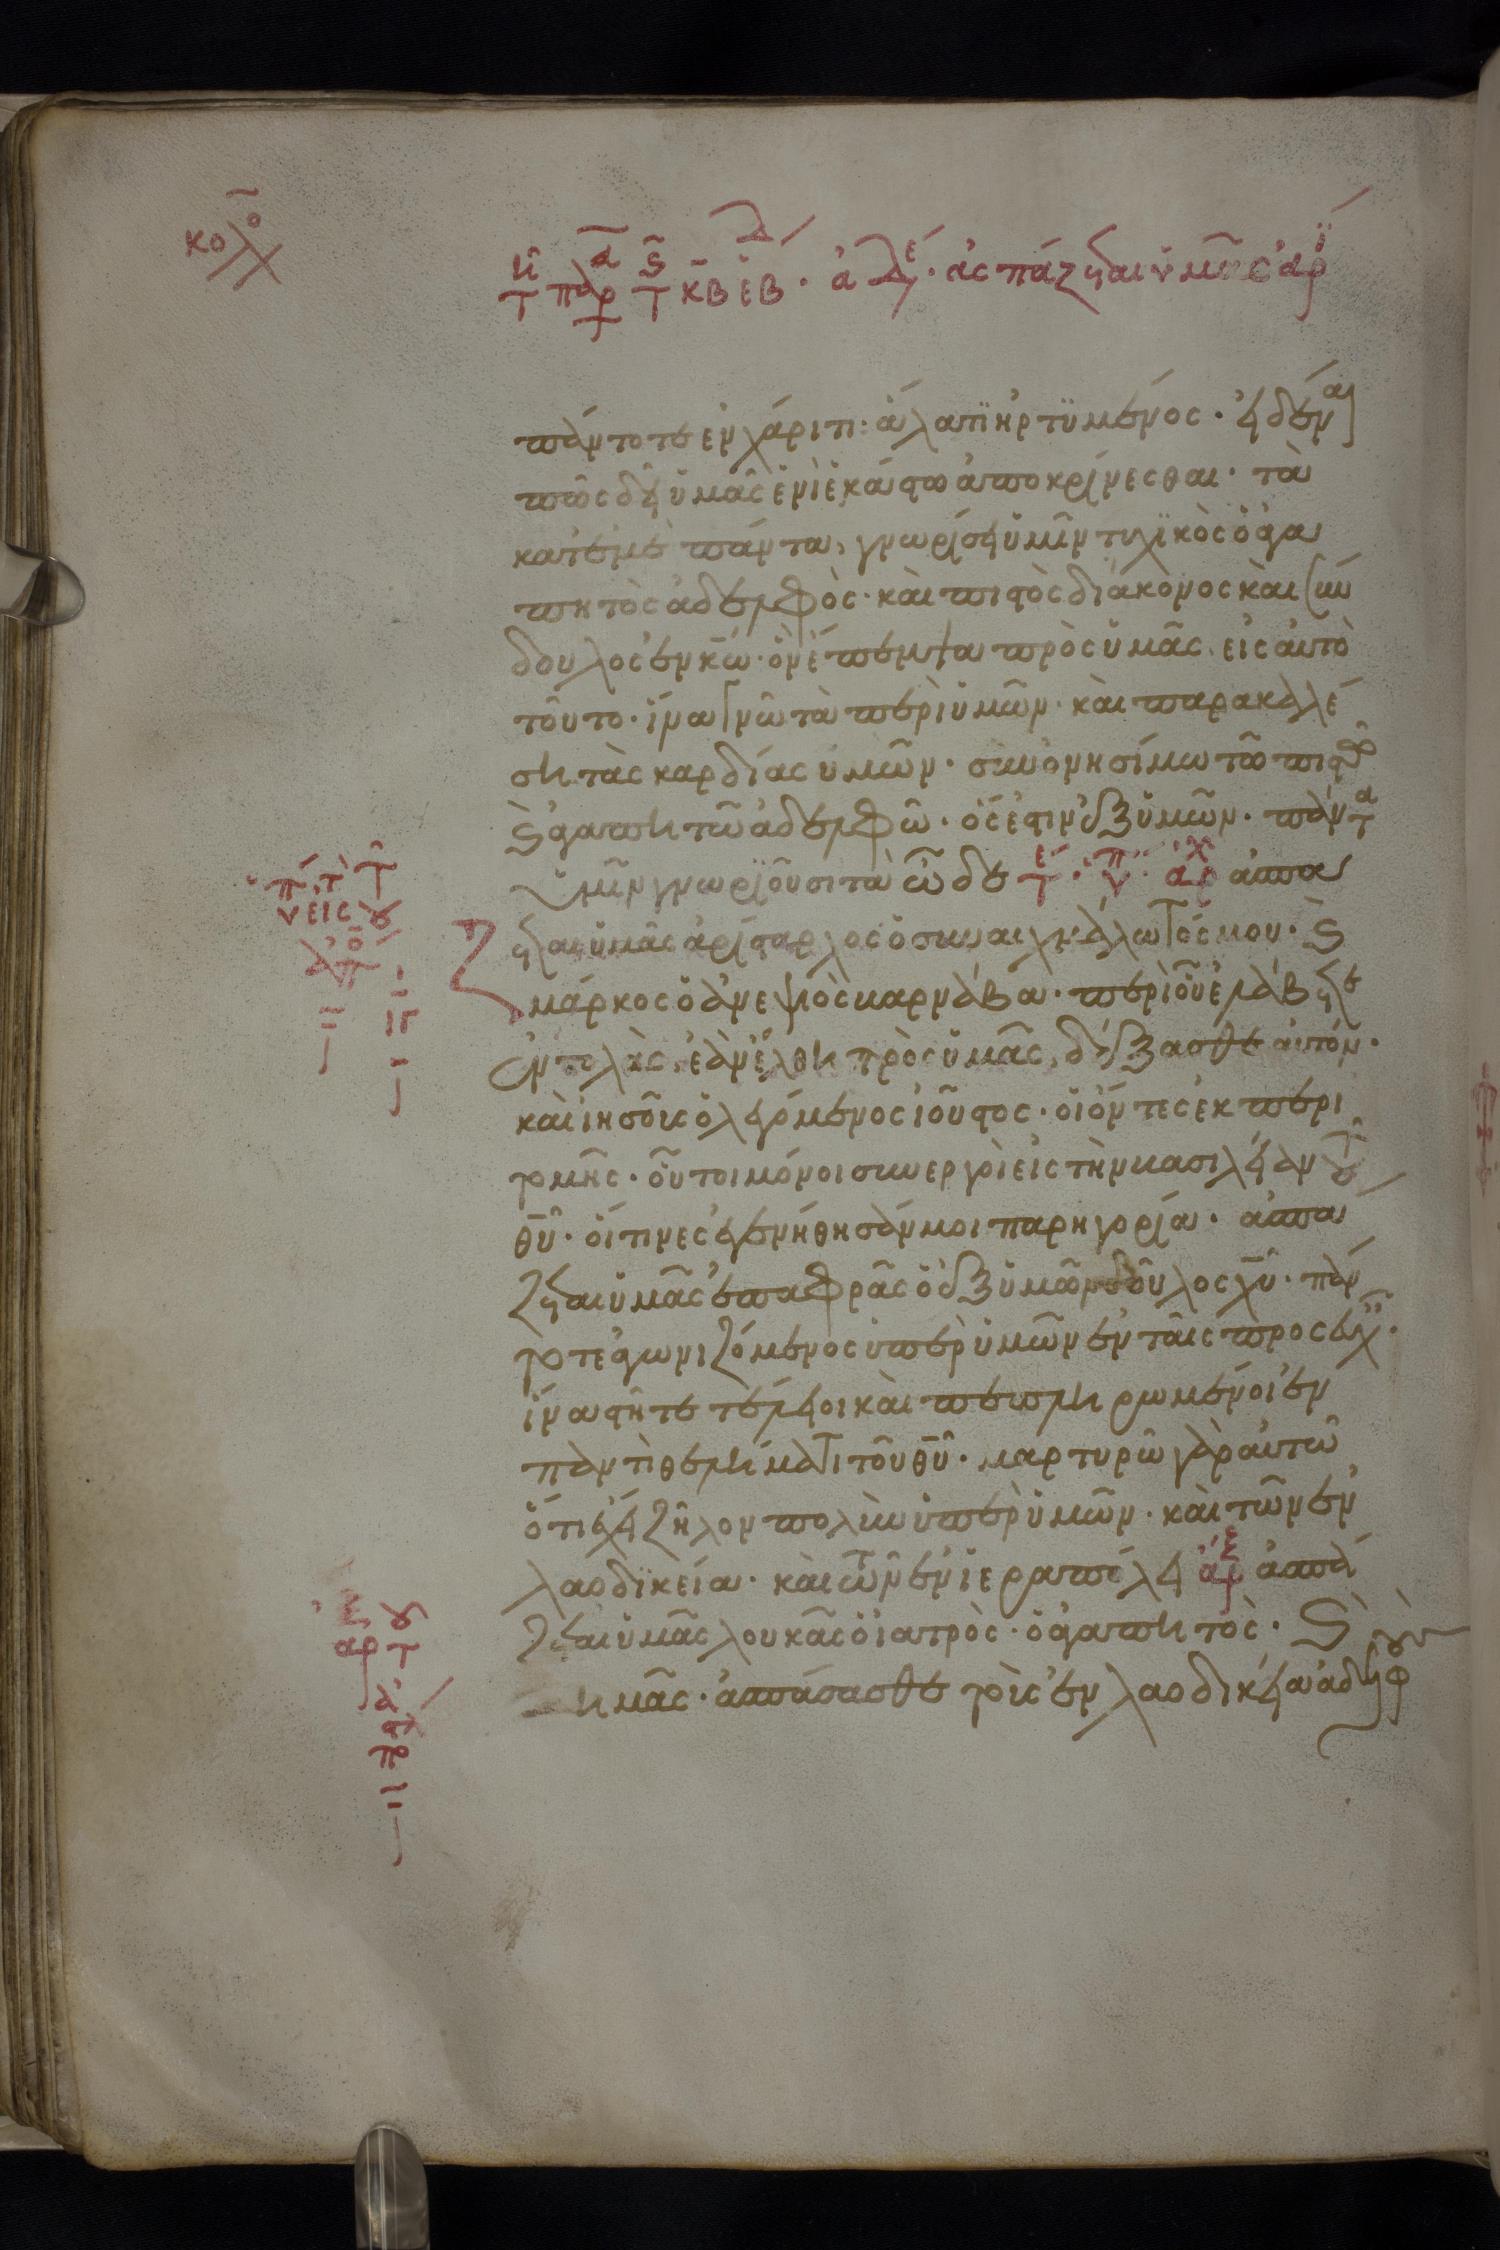 κολοχ
τη παρ τς κβ εβ· ἀδελ· ἀσπάζεται ὑμᾶς ἀρι
πάντοτε ἐν χάριτι· ἅλατι ἠρτυμένος· εἰδέναι
πῶς δεῖ ὑμᾶς ἑνὶ ἑκάστω ἀποκρίνεσθαι· τὰ
κατ' ἐμὲ πάντα, γνωρίσει ὑμῖν τυχικὸς ὁ ἀγα
πητὸς ἀδελφὸς· καὶ πιστὸς διάκονος καὶ σύν
δουλος ἐν κω· ὃν ἔπεμψα πρὸς ὑμᾶς εἰς αὐτὸ
τοῦτο· ἵνα γνῶ τὰ περὶ ὑμῶν· καὶ παρακαλέ
ση τὰς καρδίας ὑμῶν· σὺν ὀνησίμω τῶ πιστῶ
καὶ ἀγαπητῶ ἀδελφῶ· ὅς ἐστιν ἐξ ὑμῶν· πάντα
ὑμῖν γνωριοῦσι τὰ ὧδε τε· ἀρχ ἀσπά
ζεται ὑμᾶς ἀρίσταρχος ὁ συναιχμάλωτός μου· καὶ
μάρκος ὁ ἀνεψιὸς βαρνάβα· περὶ οὗ ἐλάβετε
ἐντολὰς, ἐὰν ἔλθη πρὸς ὑμᾶς, δέξασθε αὐτόν·
καὶ ἰησοῦς ὁ λεγόμενος ἰοῦστος· οἱ ὄντες ἐκ περι
τομῆς· οὗτοι μόνοι συνεργοὶ εἰς τὴν βασιλείαν τοῦ
θυ· οἵτινες ἐγενήθησάν μοι παρηγορία· ἀσπά
ζεται ὑμᾶς ἐπαφρᾶς ὁ ἐξ ὑμῶν δοῦλος χυ· πάν
τοτε ἀγωνιζόμενος ὑπὲρ ὑμῶν ἐν ταῖς προσευχ·
ἵνα στῆτε τέλειοι καὶ πεπληρωμένοι ἐν
παντὶ θελήματι τοῦ θυ· μαρτυρῶ γὰρ αὐτῶ
ὅτι ἔχει ζῆλον πολὺν ὑπὲρ ὑμῶν· καὶ τῶν ἐν
λαοδικεία· καὶ τῶν ἐν ἱεραπόλει ἀρξ ἀσπά
ζεται ὑμᾶς λουκᾶς ὁ ἰατρὸς· ὁ ἀγαπητὸς· καὶ
δημᾶς· ἀσπάσασθε τοὺς ἐν λαοδικεία ἀδελφοὺς